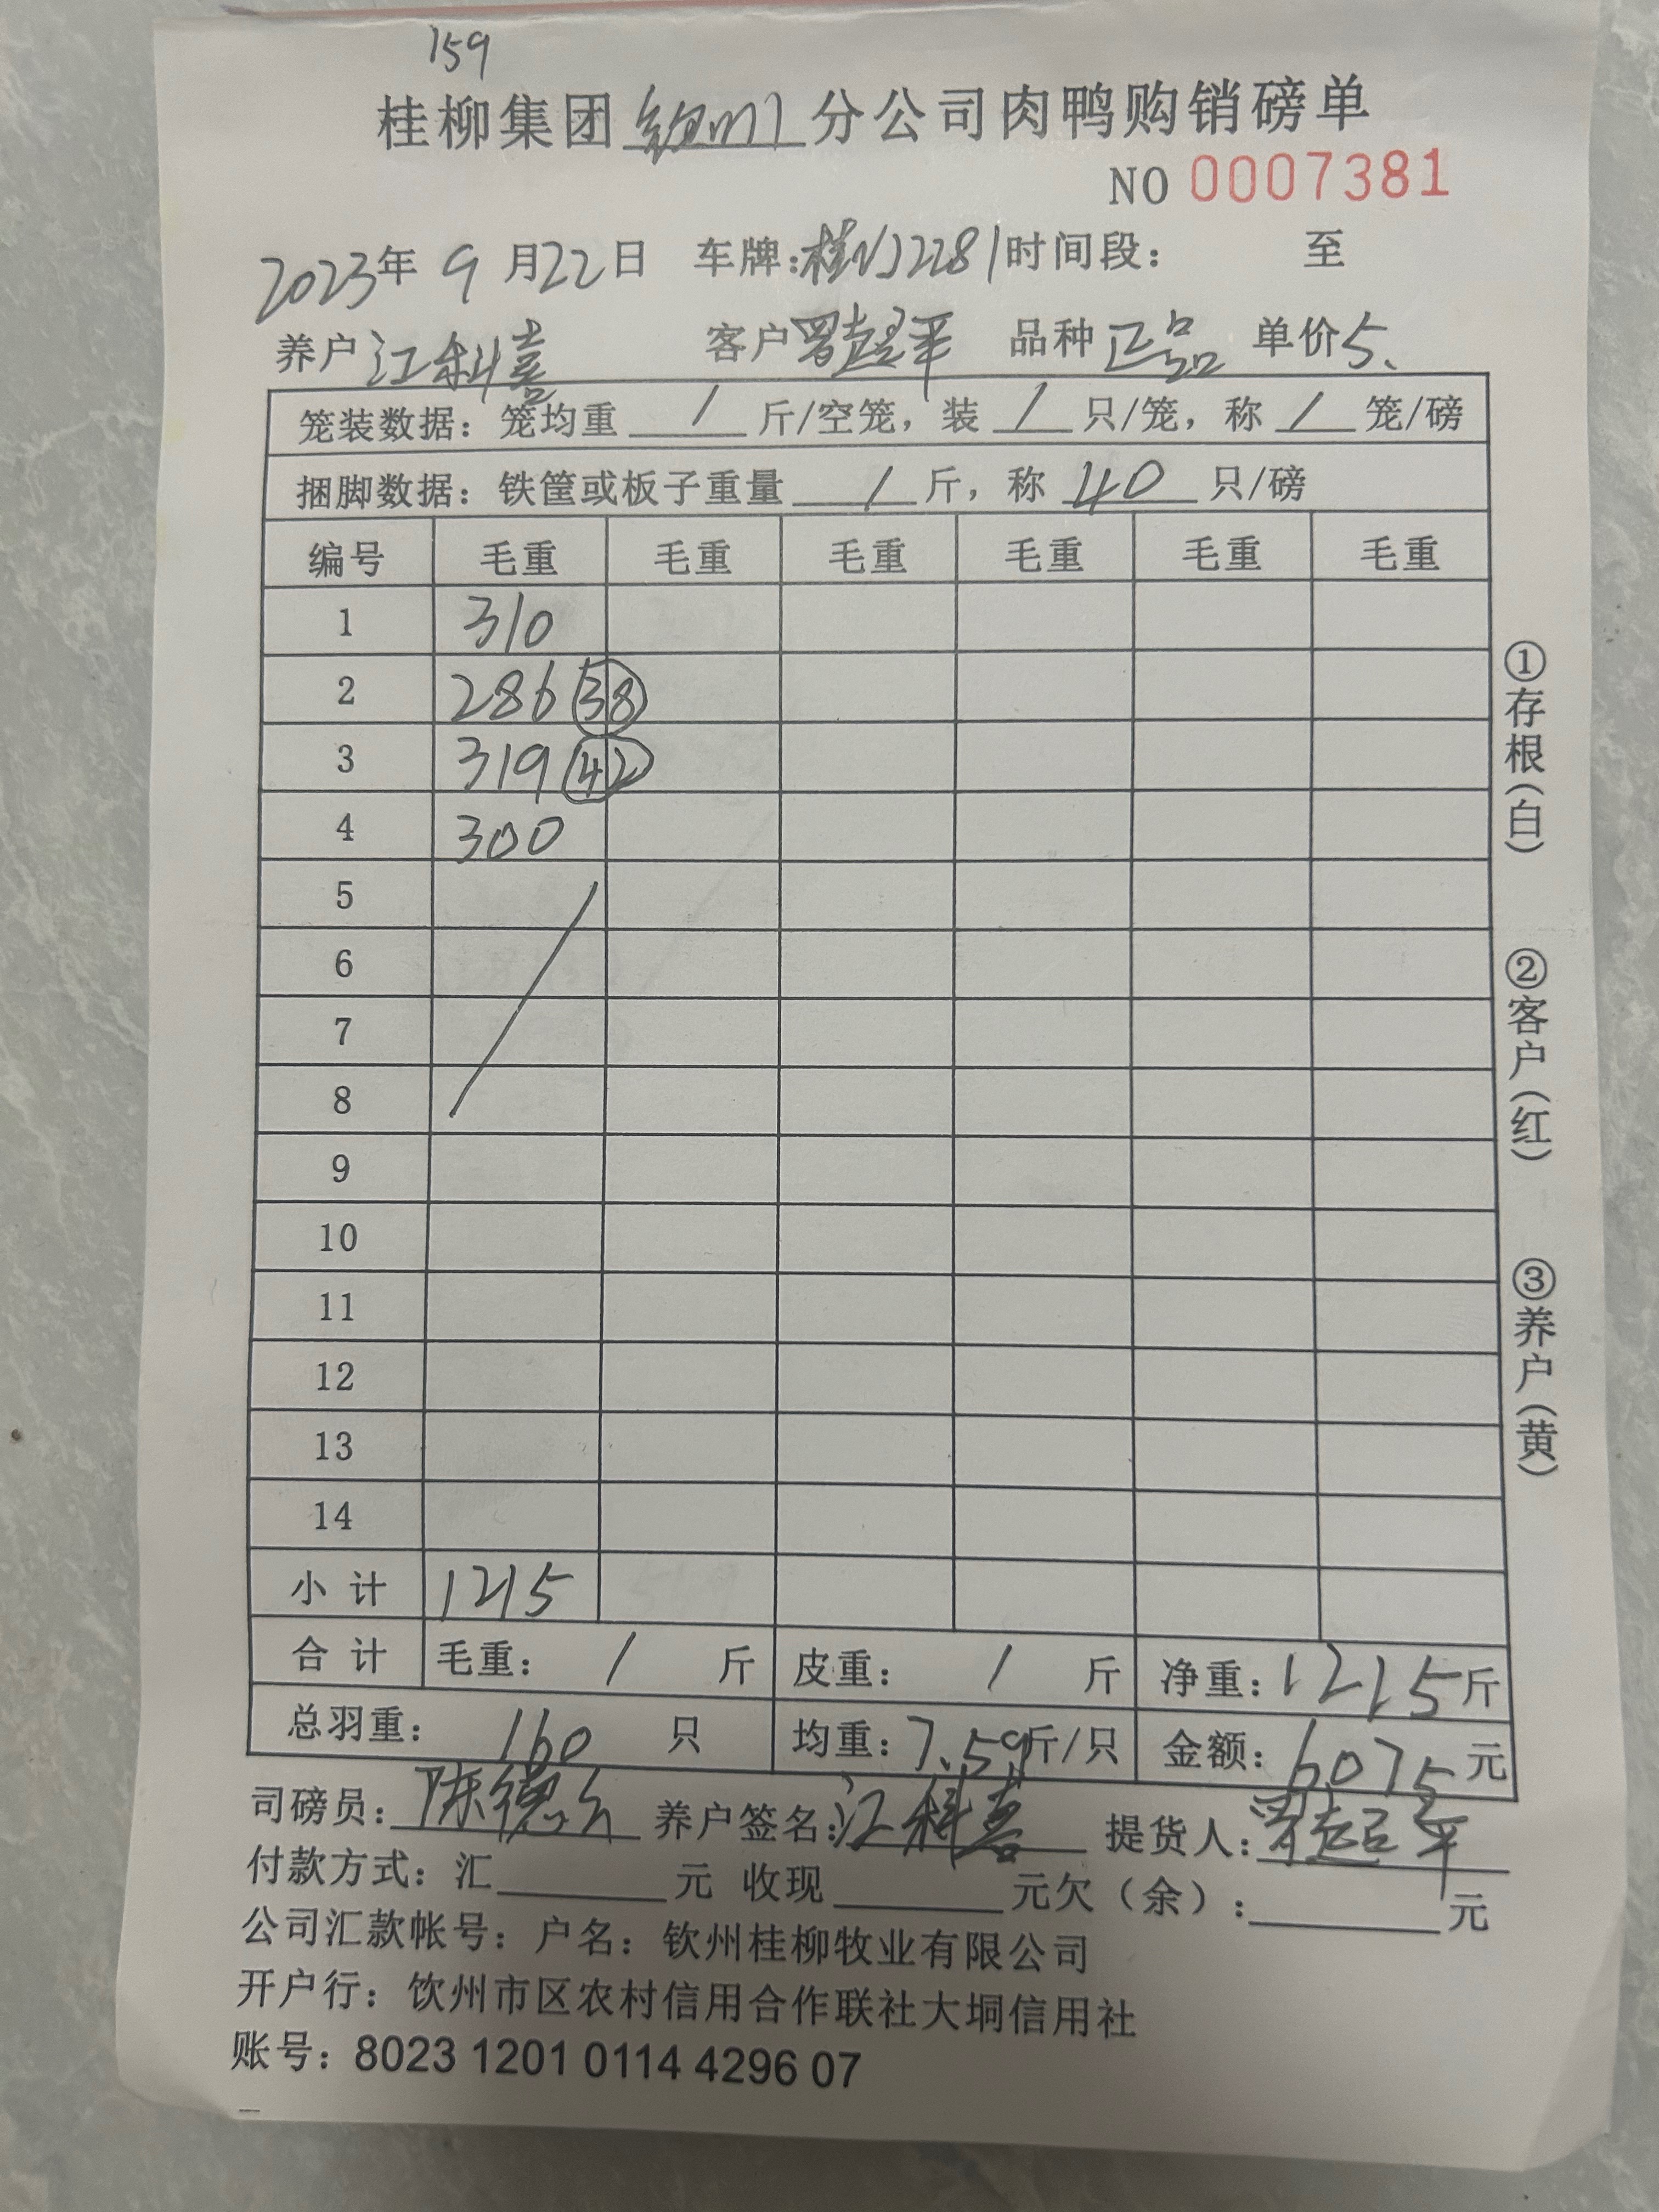 159
桂柳集团 钦州 分公司肉鸭购销磅单
NO 0007381
2023年 9 月22日 车牌: 2281 时间段： 至
养户 江科喜 客户 罗超平 品种 正品 单价5.
笼装数据：笼均重 / 斤/空笼，装 / 只/笼，称 / 笼/磅
捆脚数据：铁筐或板子重量 / 斤，称 40 只/磅
编号 毛重 毛重 毛重 毛重 毛重 毛重
1 310
2 286 38
3 319 42
4 300
5
6
7
8
9
10
11
12
13
14
小 计 1215
合 计 毛重： / 斤 皮重： / 斤 净重：1215斤
总羽重： 160 只 均重：7.59斤/只 金额：6075元
司磅员：陈德 养户签名：江科喜 提货人：罗超平
付款方式：汇 元 收现 元欠（余）： 元
公司汇款帐号：户名：钦州桂柳牧业有限公司
开户行：饮州市区农村信用合作联社大垌信用社
账号：8023 1201 0114 4296 07
①存根（白）
②客户（红）
③养户（黄）